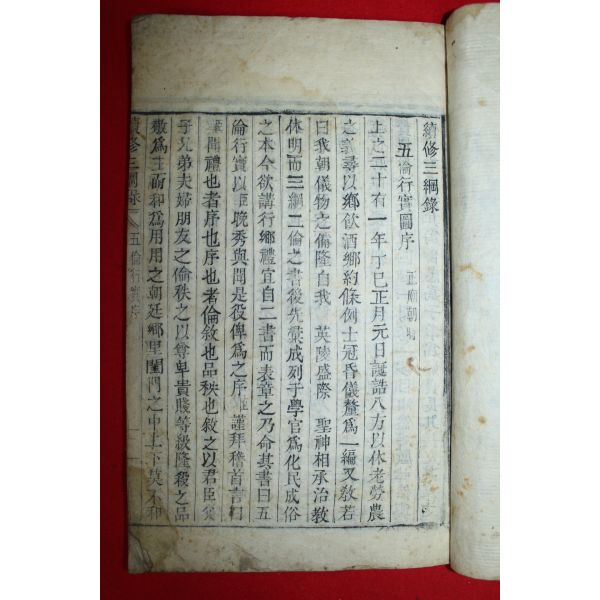 續修三綱錄
五倫行實圖序 正廟朝
上之二十有一年丁巳正月元日誕誥八方以休老勞農
之義尋以鄕飮酒鄕約條例士冠昏儀釐爲一編又敎若
曰我朝儀物之備隆自我 英陵盛際 聖神相承治敎
休明而三綱二倫之書後先彙成列于學官爲化民成俗
之本今欲講行鄕禮宜自二書而表章之乃命其書曰五
倫行實以臣晩秀與聞是役俾爲之序臣謹拜稽首言曰
臣聞禮也者序也序也者倫敘也品秩也敘之以君臣父
子兄弟夫婦朋友之倫秩之以尊卑貴賤等級隆殺之品
敬爲主而和爲用用之朝廷鄕里閨門之中上下莫不和
續修三綱錄 五倫行實序